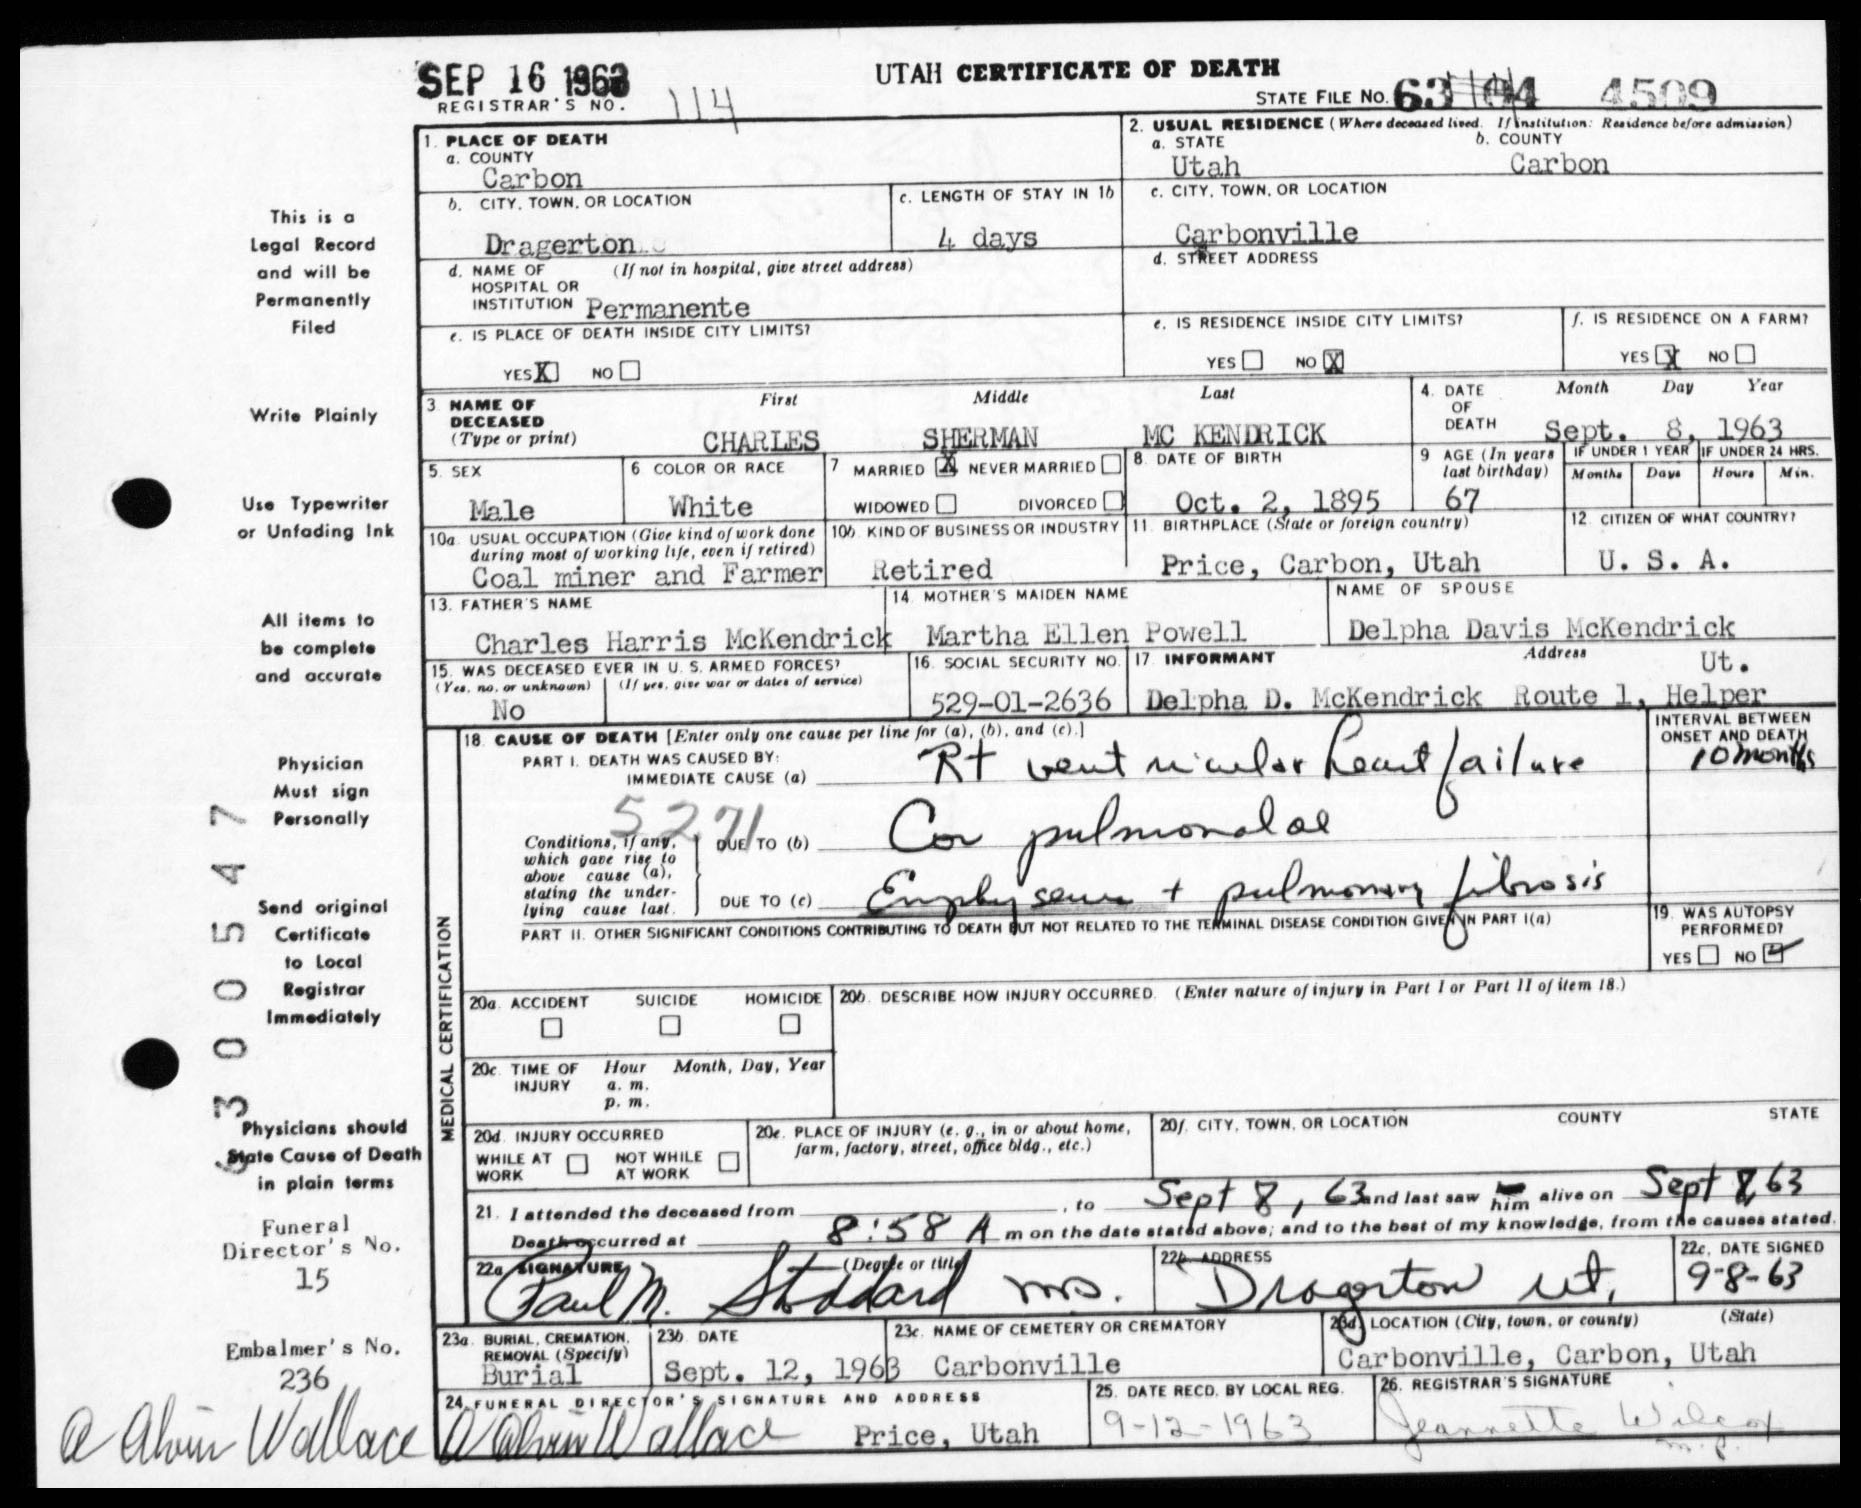 SEP 16 1963
UTAH CERTIFICATE OF DEATH
REGISTRAR'S NO. 114
STATE FILE NO. 63 04 4509
1. PLACE OF DEATH
a. COUNTY
Carbon
2. USUAL RESIDENCE (Where deceased lived. If institution: Residence before admission)
a. STATE b. COUNTY
Utah Carbon
b. CITY, TOWN, OR LOCATION
Dragerton
c. LENGTH OF STAY IN 1b
4 days
c. CITY, TOWN, OR LOCATION
Carbonville
d. NAME OF (If not in hospital, give street address)
HOSPITAL OR
INSTITUTION Permanente
d. STREET ADDRESS
e. IS PLACE OF DEATH INSIDE CITY LIMITS?
YES X NO
e. IS RESIDENCE INSIDE CITY LIMITS?
YES NO X
f. IS RESIDENCE ON A FARM?
YES X NO
3 NAME OF DECEASED
(Type or print)
First Middle Last
CHARLES SHERMAN MC KENDRICK
4. DATE OF DEATH
Month Day Year
Sept. 8, 1963
5. SEX
Male
6 COLOR OR RACE
White
7 MARRIED X NEVER MARRIED
WIDOWED DIVORCED
8. DATE OF BIRTH
Oct. 2, 1895
9 AGE (In years last birthday)
67
IF UNDER 1 YEAR
Months Days
IF UNDER 24 HRS.
Hours Min.
10a. USUAL OCCUPATION (Give kind of work done
during most of working life, even if retired)
Coal miner and Farmer
10b. KIND OF BUSINESS OR INDUSTRY
Retired
11. BIRTHPLACE (State or foreign country)
Price, Carbon, Utah
12. CITIZEN OF WHAT COUNTRY?
U. S. A.
13. FATHER'S NAME
Charles Harris McKendrick
14. MOTHER'S MAIDEN NAME
Martha Ellen Powell
NAME OF SPOUSE
Delpha Davis McKendrick
15. WAS DECEASED EVER IN U. S. ARMED FORCES?
(Yes, no, or unknown) (If yes, give war or dates of service)
No
16. SOCIAL SECURITY NO.
529-01-2636
17. INFORMANT Address
Ut.
Delpha D. McKendrick Route 1, Helper
MEDICAL CERTIFICATION
18. CAUSE OF DEATH [Enter only one cause per line for (a), (b), and (c).]
INTERVAL BETWEEN
ONSET AND DEATH
PART I. DEATH WAS CAUSED BY:
IMMEDIATE CAUSE (a) Rt ventricular heart failure
10 months
5271
Conditions, if any,
which gave rise to
above cause (a),
stating the under-
lying cause last.
DUE TO (b) Cor pulmonalae
DUE TO (c) Emphysema + pulmonary fibrosis
PART II. OTHER SIGNIFICANT CONDITIONS CONTRIBUTING TO DEATH BUT NOT RELATED TO THE TERMINAL DISEASE CONDITION GIVEN IN PART I(a)
19. WAS AUTOPSY
PERFORMED?
YES NO ✓
20a. ACCIDENT SUICIDE HOMICIDE
20b. DESCRIBE HOW INJURY OCCURRED. (Enter nature of injury in Part I or Part II of item 18.)
20c. TIME OF INJURY
Hour Month, Day, Year
a. m.
p. m.
20d. INJURY OCCURRED
WHILE AT WORK NOT WHILE AT WORK
20e. PLACE OF INJURY (e. g., in or about home,
farm, factory, street, office bldg., etc.)
20f. CITY, TOWN, OR LOCATION COUNTY STATE
21. I attended the deceased from , to Sept 8, 63 and last saw him alive on Sept 8, 63
Death occurred at 8:58 A m on the date stated above; and to the best of my knowledge, from the causes stated.
22a. SIGNATURE (Degree or title)
Paul M. Stoddard MD.
22b. ADDRESS
Dragerton Ut.
22c. DATE SIGNED
9-8-63
23a. BURIAL, CREMATION,
REMOVAL (Specify)
Burial
23b. DATE
Sept. 12, 1963
23c. NAME OF CEMETERY OR CREMATORY
Carbonville
23d. LOCATION (City, town, or county) (State)
Carbonville, Carbon, Utah
24. FUNERAL DIRECTOR'S SIGNATURE AND ADDRESS
A Alvin Wallace Price, Utah
25. DATE RECD. BY LOCAL REG.
9-12-1963
26. REGISTRAR'S SIGNATURE
Jeannette Wilcox
This is a
Legal Record
and will be
Permanently
Filed
Write Plainly
Use Typewriter
or Unfading Ink
All items to
be complete
and accurate
Physician
Must sign
Personally
Send original
Certificate
to Local
Registrar
Immediately
Physicians should
State Cause of Death
in plain terms
6300547
Funeral
Director's No.
15
Embalmer's No.
236
A Alvin Wallace